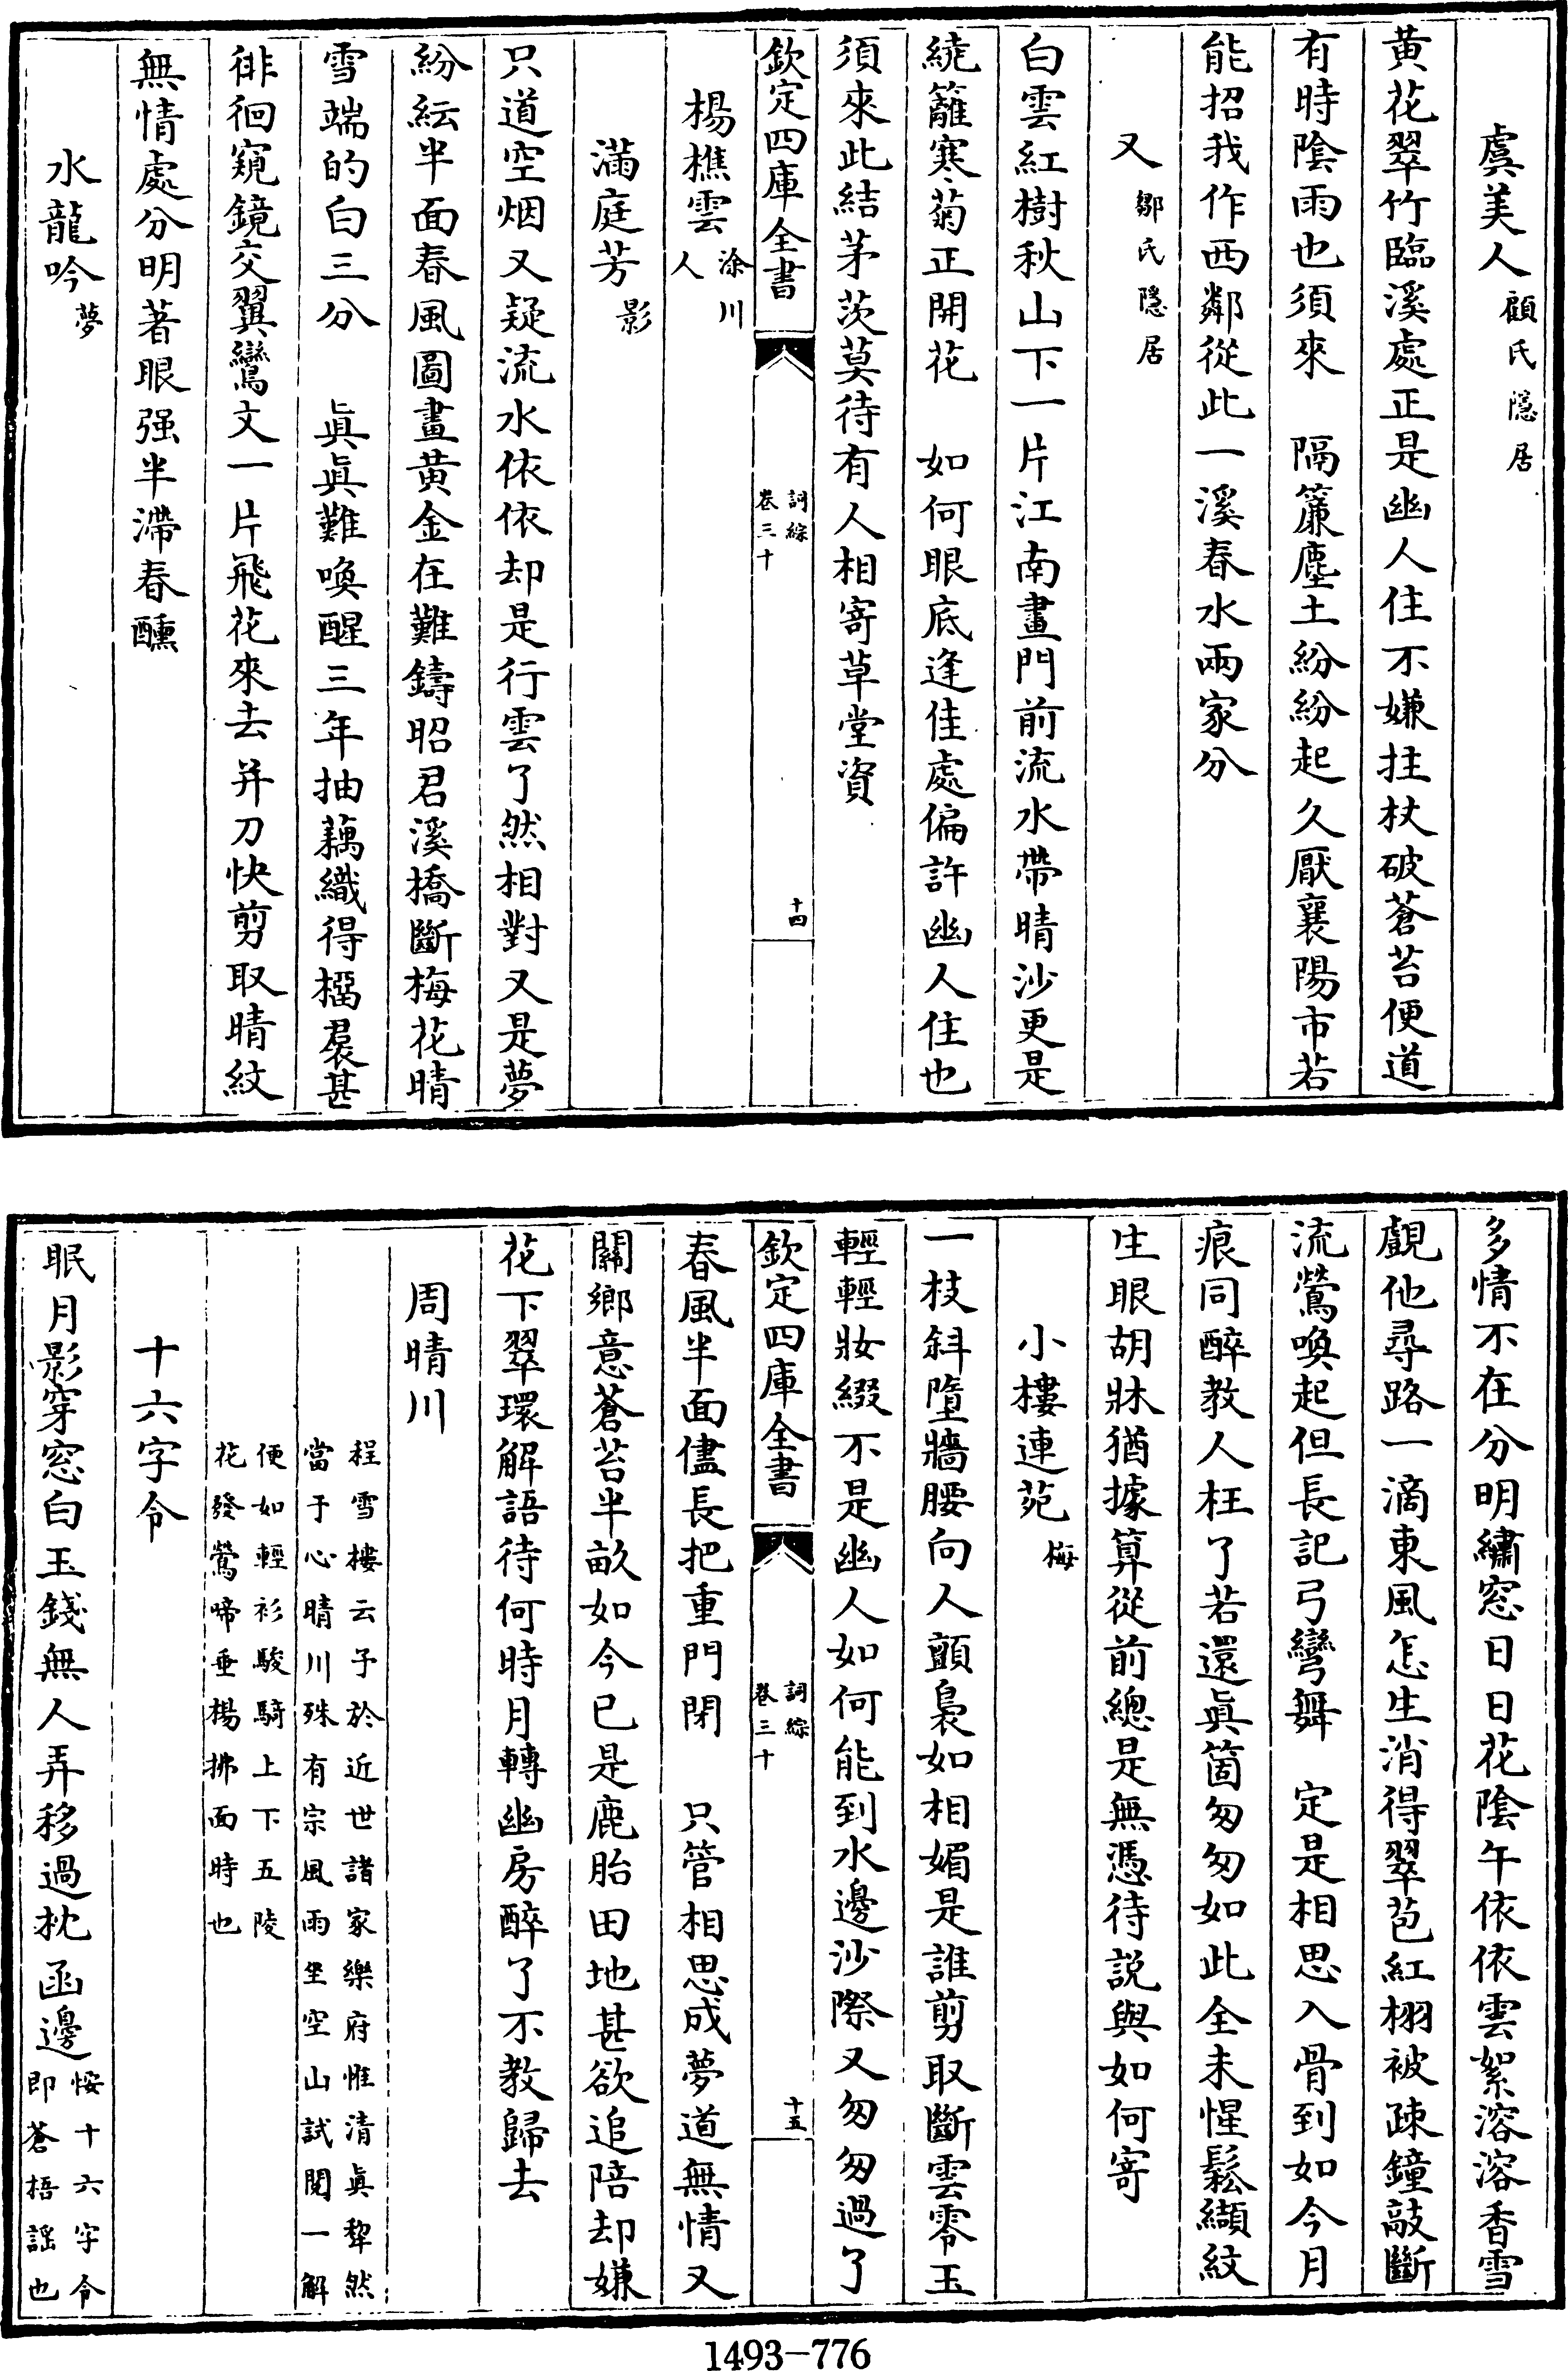 虞美人顧氏隱居
黄花翠竹臨溪處正是幽人住不嫌拄杖破蒼苔便道
有時陰雨也須來　隔簾塵土紛紛起久厭襄陽市若
能招我作西鄰從此一溪春水兩家分
又鄒氏隱居
白雲紅樹秋山下一片江南畫門前流水帶晴沙更是
繞籬寒菊正開花　如何眼底逢佳處偏許幽人住也
須來此結茅茨莫待有人相寄草堂資
欽定四庫全書
詞綜
卷三十
十四
楊樵雲涂川
人
滿庭芳影
只道空烟又疑流水依依却是行雲了然相對又是夢
紛紜半面春風圖畫黄金在難鑄昭君溪橋斷梅花晴
雪端的白三分　眞眞難喚醒三年抽藕織得榴裠甚
徘徊窺鏡交翼鸞文一片飛花來去并刀快剪取晴紋
無情處分明著眼强半滯春醺
水龍吟夢
多情不在分明繡窓日日花陰午依依雲絮溶溶香雪
覷他尋路一滴東風怎生消得翠苞紅栩被疎鐘敲斷
流鶯喚起但長記弓彎舞　定是相思入骨到如今月
痕同醉教人枉了若還眞箇匆匆如此全未惺鬆纈紋
生眼胡牀猶據算從前總是無憑待説與如何寄
小樓連苑梅
一枝斜墮牆腰向人顫裊如相媚是誰剪取斷雲零玉
輕輕妝綴不是幽人如何能到水邊沙際又匆匆過了
欽定四庫全書
詞綜
卷三十
十五
春風半面儘長把重門閉　只管相思成夢道無情又
關鄉意蒼苔半畝如今已是鹿胎田地甚欲追陪却嫌
花下翠環解語待何時月轉幽房醉了不教歸去
周晴川
程雪樓云予於近世諸家樂府惟清眞犂然
當于心晴川殊有宗風雨坐空山試閱一解
便如輕衫駿騎上下五陵
花發鶯啼垂楊拂面時也
十六字令
眠月影穿窓白玉錢無人弄移過枕函邊
按十六字令
即蒼梧謡也
1493-776